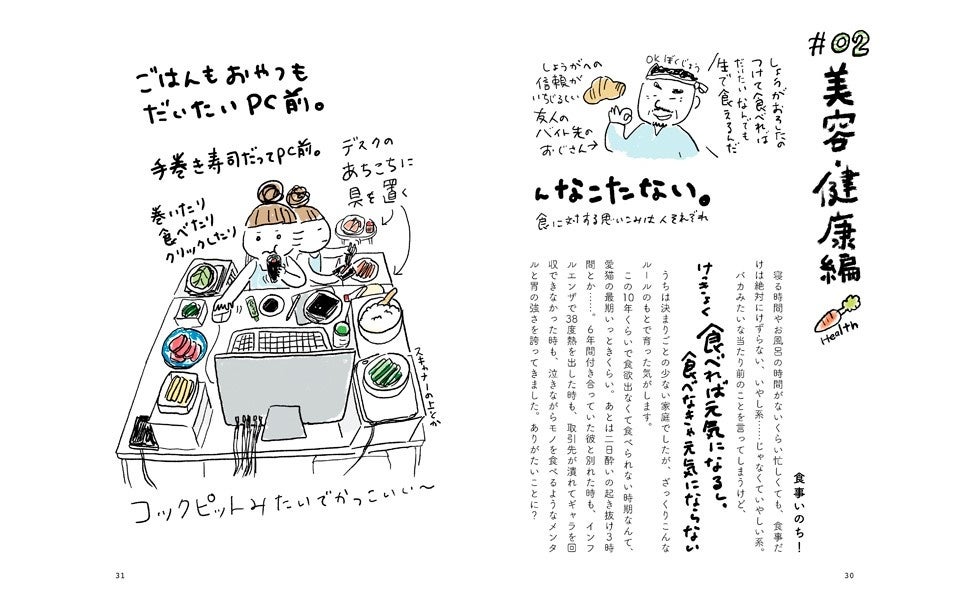 #02
美容・健康編
Health
しょうがおろしたの
つけて食べれば
だいたいなんでも
生で食えるんだ
OKぼくじょう
しょうがへの
信頼が
いちじるしい
友人の
バイト先の
おじさん→
んなこたない。
食に対する思いこみは人それぞれ
食事いのち！
寝る時間やお風呂の時間がないくらい忙しくても、食事だ
けは絶対にけずらない、いやし系……じゃなくていやしい系。
バカみたいな当たり前のことを言ってしまうけど、
けっきょく食べれば元気になるし、
食べなきゃ元気にならない
うちは決まりごとの少ない家庭でしたが、ざっくりこんな
ルールのもとで育った気がします。
この10年くらいで食欲出なくて食べられない時期なんて、
愛猫の最期いっときくらい。あとは二日酔いの起き抜け3時
間とか……。6年間付き合っていた彼と別れた時も、インフ
ルエンザで38度熱を出した時も、取引先が潰れてギャラを回
収できなかった時も、泣きながらモノを食べるようなメンタ
ルと胃の強さを誇ってきました。ありがたいことに？
30
ごはんもおやつも
だいたいPC前。
手巻き寿司だってPC前。
デスクの
あちこちに
具を置く
巻いたり
食べたり
クリックしたり
スキャナーの上とか
コックピットみたいでかっこいい〜
31